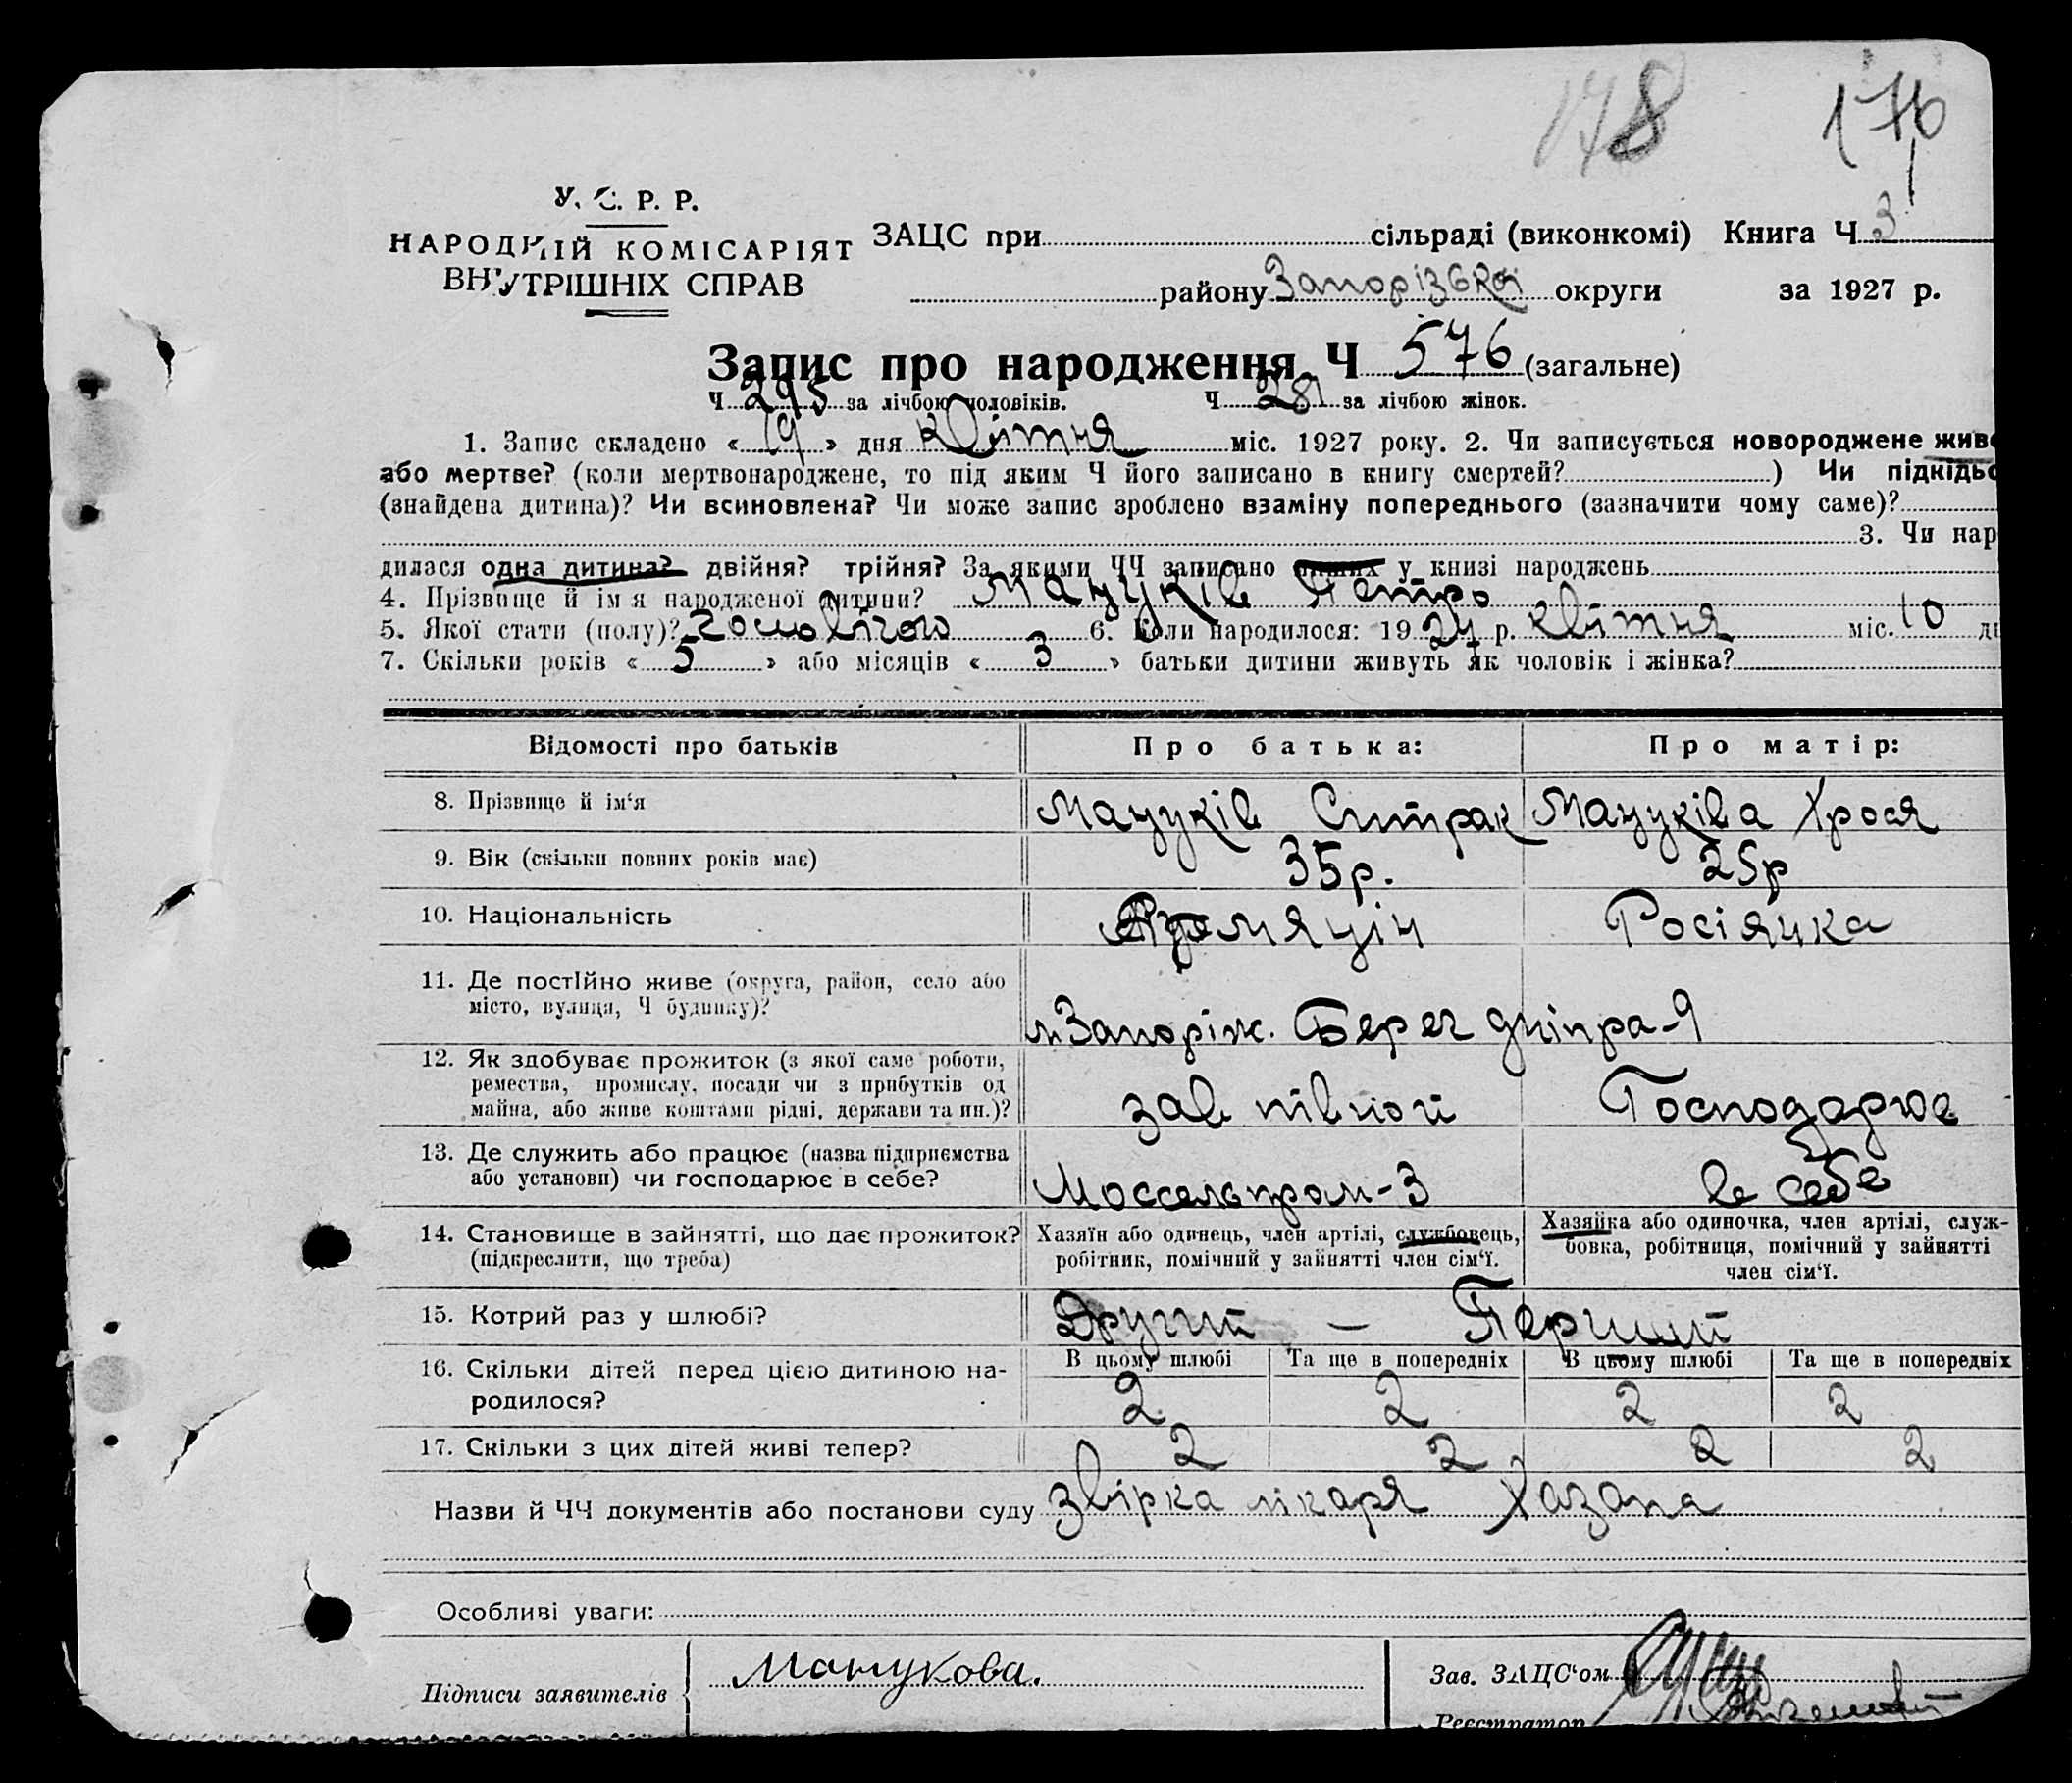 178 176
У. С. Р. Р.
НАРОДНІЙ КОМІСАРІЯТ
ВНУТРІШНІХ СПРАВ
ЗАЦС при сільраді (виконкомі) Книга Ч 3
району Запорізької округи за 1927 р.
Запис про народження Ч 576 (загальне)
Ч 295 за лічбою чоловіків. Ч 281 за лічбою жінок.
1. Запис складено « 19 » дня квітня міс. 1927 року. 2. Чи записується новороджене живе
або мертве? (коли мертвонароджене, то під яким Ч його записано в книгу смертей? ) Чи підкідьо
(знайдена дитина)? Чи всиновлена? Чи може запис зроблено взаміну попереднього (зазначити чому саме)?
3. Чи нар
дилася одна дитина? двійня? трійня? За якими ЧЧ записано инших у книзі народжень
4. Прізвище й ім я народженої дитини? Мануків Петро
5. Якої стати (полу)? чоловічого 6. Коли народилося: 1927 р. квітня міс. 10 дн
7. Скільки років « 5 » або місяців « 3 » батьки дитини живуть як чоловік і жінка?
Відомості про батьків Про батька: Про матір:
8. Прізвище й ім‘я Мануків Ситрак Мануківа Хрося
9. Вік (скільки повних років має) 35р. 25р
10. Національність Ярмянін Росіянка
11. Де постійно живе (округа, район, село або
місто, вулиця, Ч будинку)?
м Запоріж. Берег Дніпра-9
12. Як здобуває прожиток (з якої саме роботи,
ремества, промислу, посади чи з прибутків од
майна, або живе коштами рідні, держави та ин.)?
зав півной Господарює
13. Де служить або працює (назва підприємства
або установи) чи господарює в себе?
Моссельпром-3 в себе
14. Становище в зайнятті, що дає прожиток?
(підкреслити, що треба)
Хазяїн або одинець, член артілі, службовець,
робітник, помічний у зайнятті член сім‘ї.
Хазяйка або одиночка, член артілі, служ-
бовка, робітниця, помічний у зайнятті
член сім‘ї.
15. Котрий раз у шлюбі? Другий — Перший
16. Скільки дітей перед цією дитиною на-
родилося?
В цьому шлюбі Та ще в попередніх В цьому шлюбі Та ще в попередніх
2 2 2 2
17. Скільки з цих дітей живі тепер? 2 2 2 2
Назви й ЧЧ документів або постанови суду звірка лікаря Хазана
Особливі уваги:
Підписи заявителів Манукова.
Зав. ЗАЦС‘ом
Реєстратор